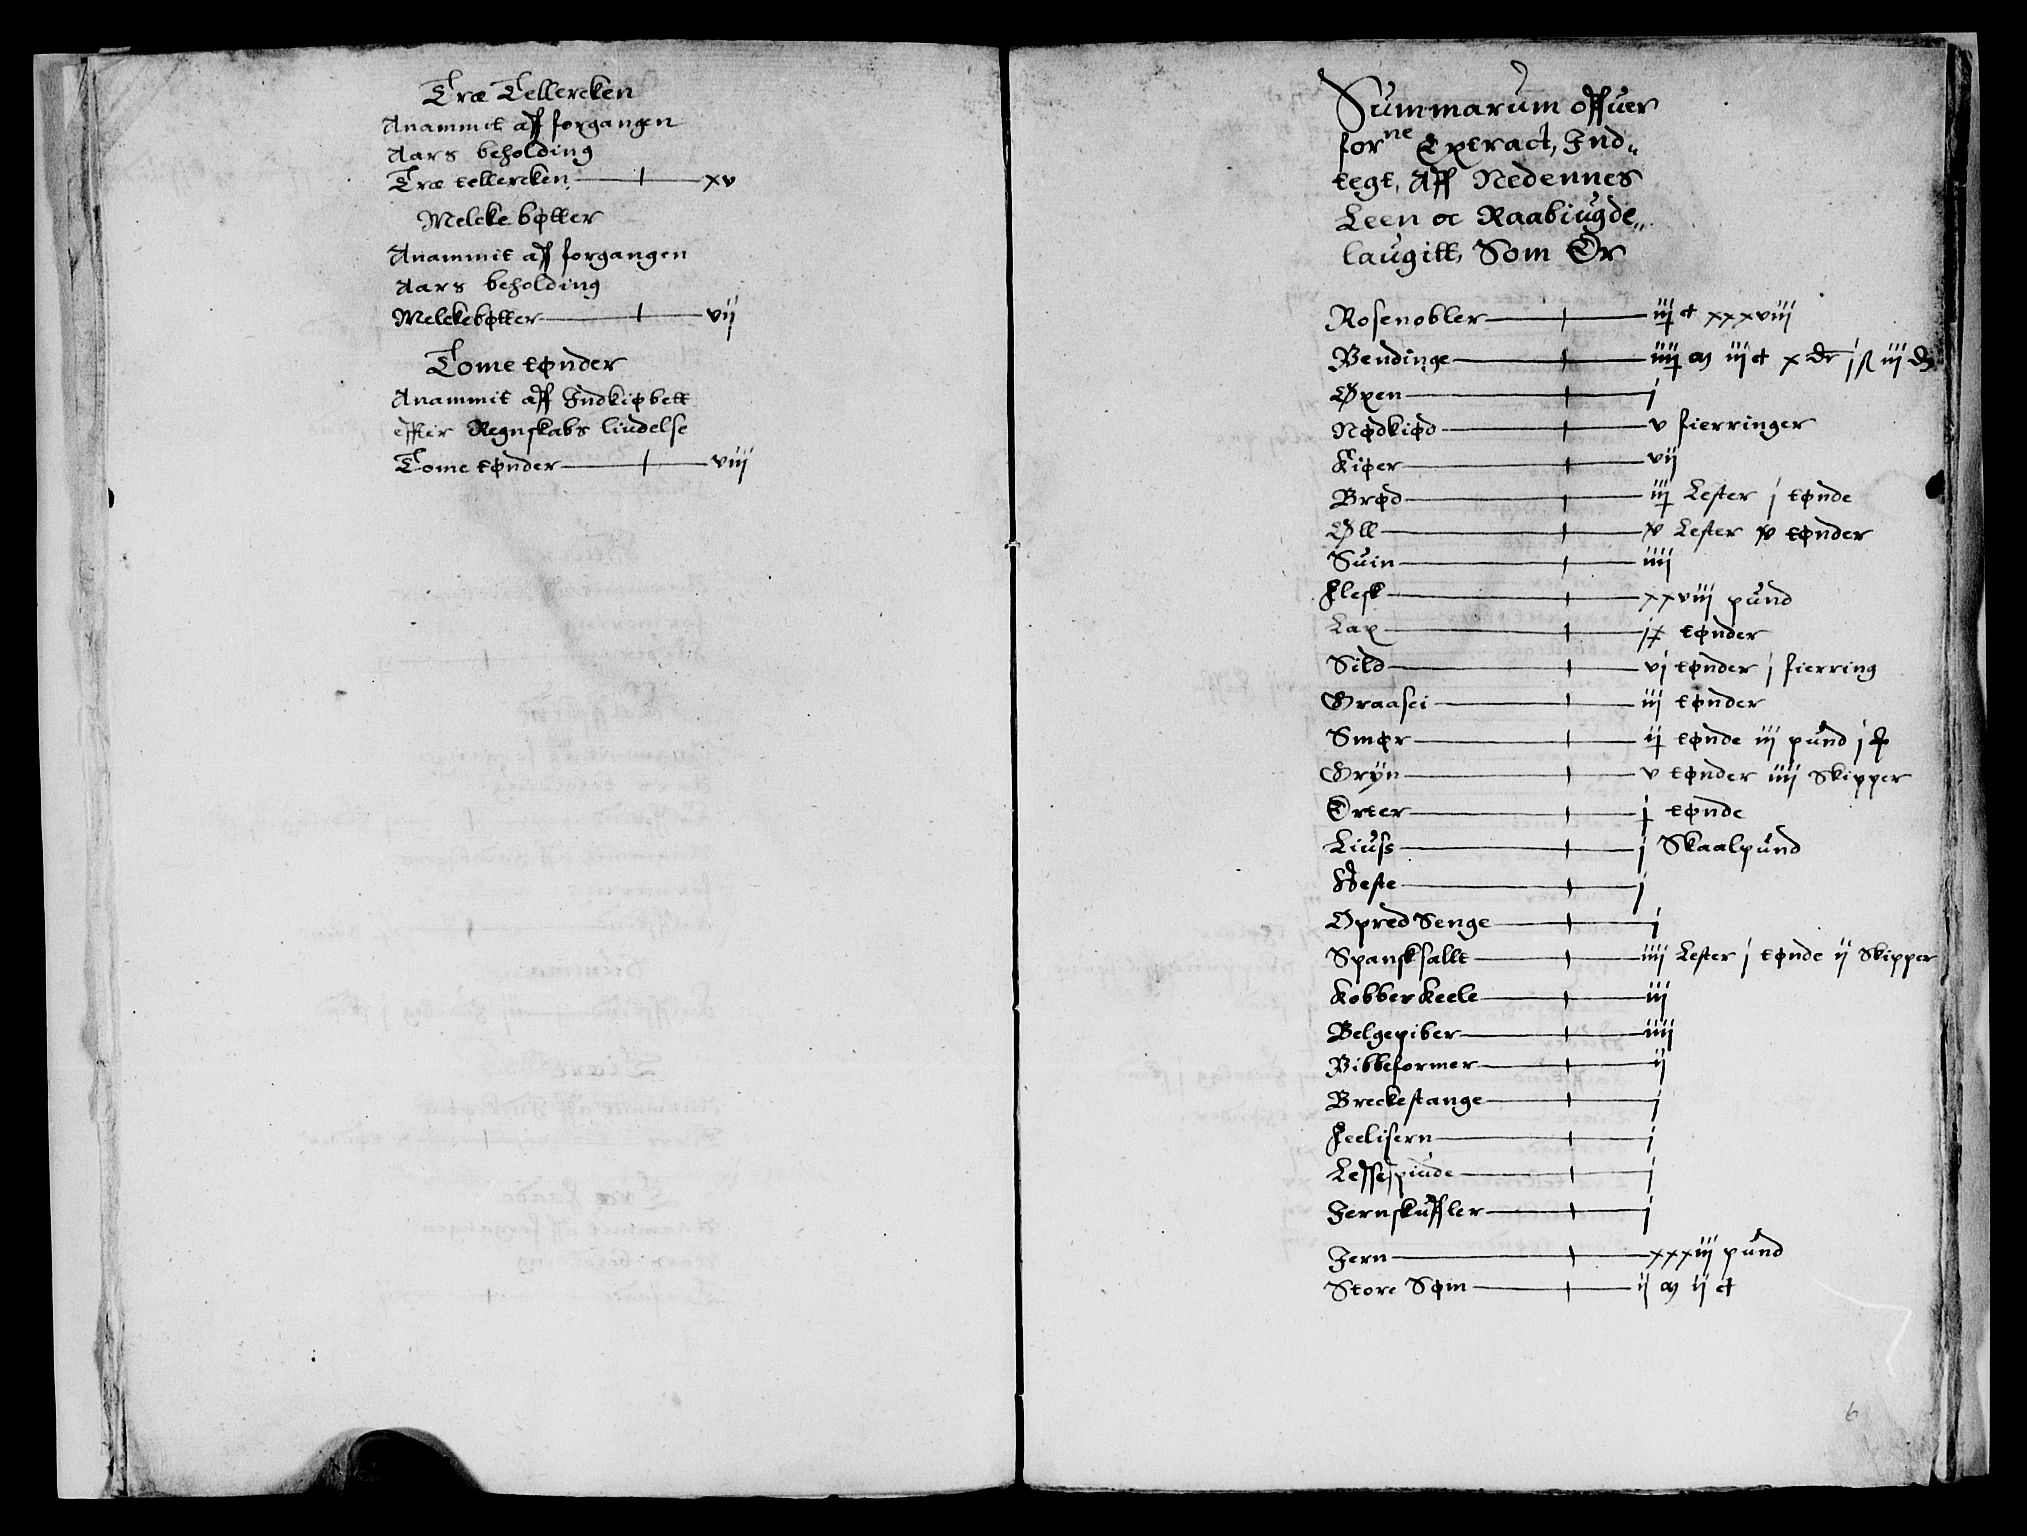 Træ Tellercken
Anammit aff forgangen
Aars beholding
Træ tellercken xv
Melcke bøtter
Anammit aff forgangen
Aars beholding
Melckebøtter vij
Tome tønder
Anammit aff Indkiøbett
effter Regnskabs liudelse
Tome tønder viij
Summarum offuer
forne Extract, Ind„
tegt, Aff Nedennes
Leen oc Raabiugde„
laugitt, Som Er
Rosenobler iij c xxxviij
Bendinge iiij m iij c x dr j ß iij
Øxen j
Nødkiød v fierringer
Kiøer vij
Brød iij Lester j tønde
Øll xv Lester xv tønder
Suin iiij
Flesk xxviij pund
Lax ix tønder
Sild vj tønder j fierring
Graasei iij tønder
Smør ij tønde iij pund j
Gryn v tønder iiij Skipper
Erter j tønde
Liuss j Skaalpund
Heste j
Opred Senge j
Spansk sallt iiij Lester j tønde ij Skipper
Kobber Keele iij
Belgepiber iiij
Bibbeformer ij
Breckestange j
Feelisern j
Lessespiude j
Jernskuffler j
Jern xxxiij pund
Store Søm ij m ij c
6